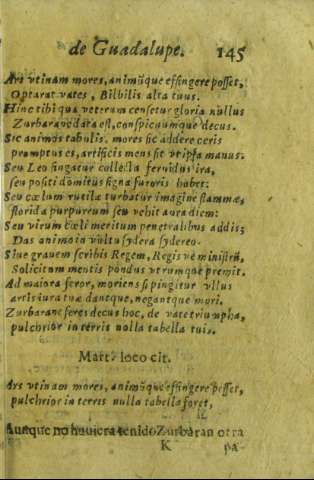 de Guadalupe. 145
Ars vtinam mores, animũque effingere posset,
Optarat vates, Bilbilis alta tuus.
Hinc tibi qua veterum censetur gloria nullus
Zurbarane data est, conspicuumque decus.
Sic animos tabulis, mores sic addere ceris
promptus es, artificis mens sit vt ipsa manus.
Seu Leo fingatur collecta feruidus ira,
seu positi domitus signa furoris habet:
Seu cœlum rutila turbatur imagine flammæ,
florida purpureum seu vehit aura diem:
Seu virum cœli meritum penetralibus addis;
Das animota vultu sydera sydereo.
Siue grauem scribis Regem, Regis vè ministrũ,
Solicitum mentis pondus vtrumque premit.
Ad maiora feror, moriens si pingitur vllus
artis iura tuæ dantque, negantque mori.
Zurbarane feres decus hoc, de vate triumpha,
pulchrior in terris nolla tabella tuis.
Mart. loco cit.
Ars vtinam mores, animũque effingere posset,
pulchrior in terres nulla tabella foret,
Aunque no huuiera tenido Zurbaran otra
K pa-